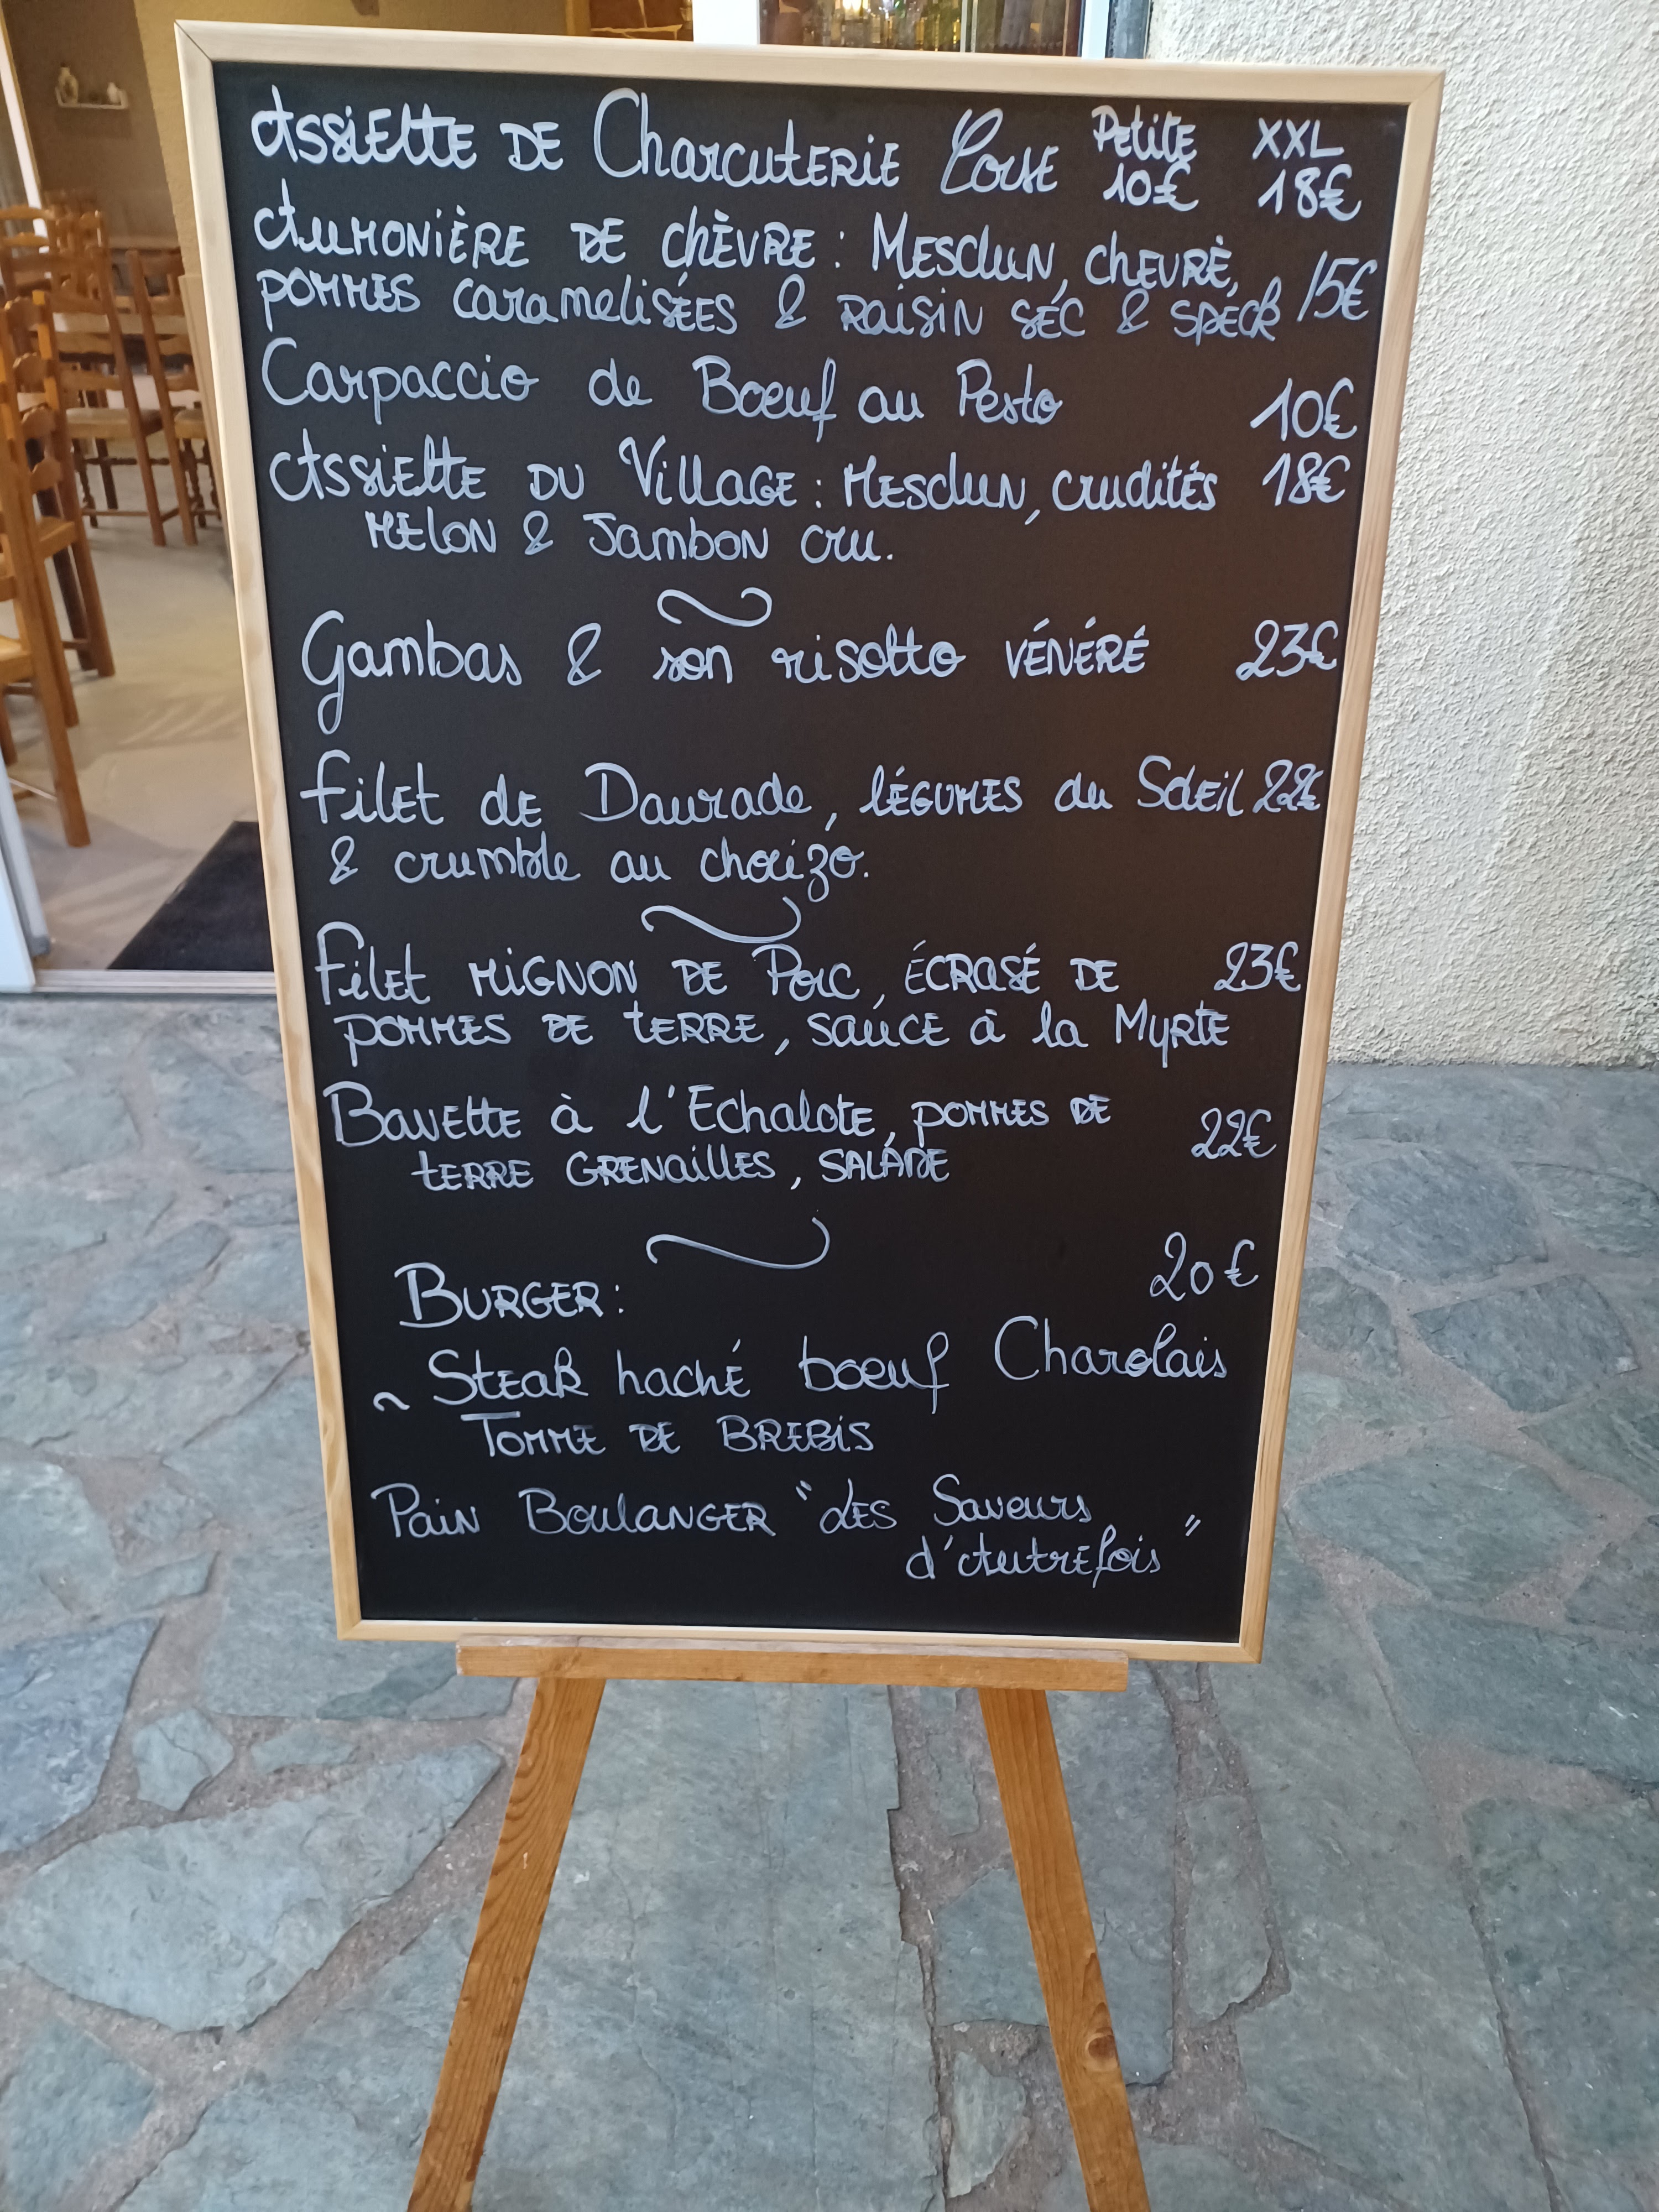 Assiette de Charcuterie Corse Petite XXL
10€ 18€
Aumonière de chèvre : Mesclun, chevrè,
pommes caramelisées & raisin sec & speck 15€
Carpaccio de Boeuf au Pesto 10€
Assiette du Village : Mesclun, crudités 18€
melon & Jambon cru.
Gambas & son risotto vénéré 23€
Filet de Daurade, légumes du Soleil 22€
& crumble au chorizo.
Filet mignon de Porc, écrasé de 23€
pommes de terre, sauce à la Myrte
Bavette à l'Echalote, pommes de 22€
terre grenailles, salade
Burger : 20€
~ Steak haché boeuf Charolais
Tomme de Brebis
Pain Boulanger "des Saveurs
d'Autrefois"